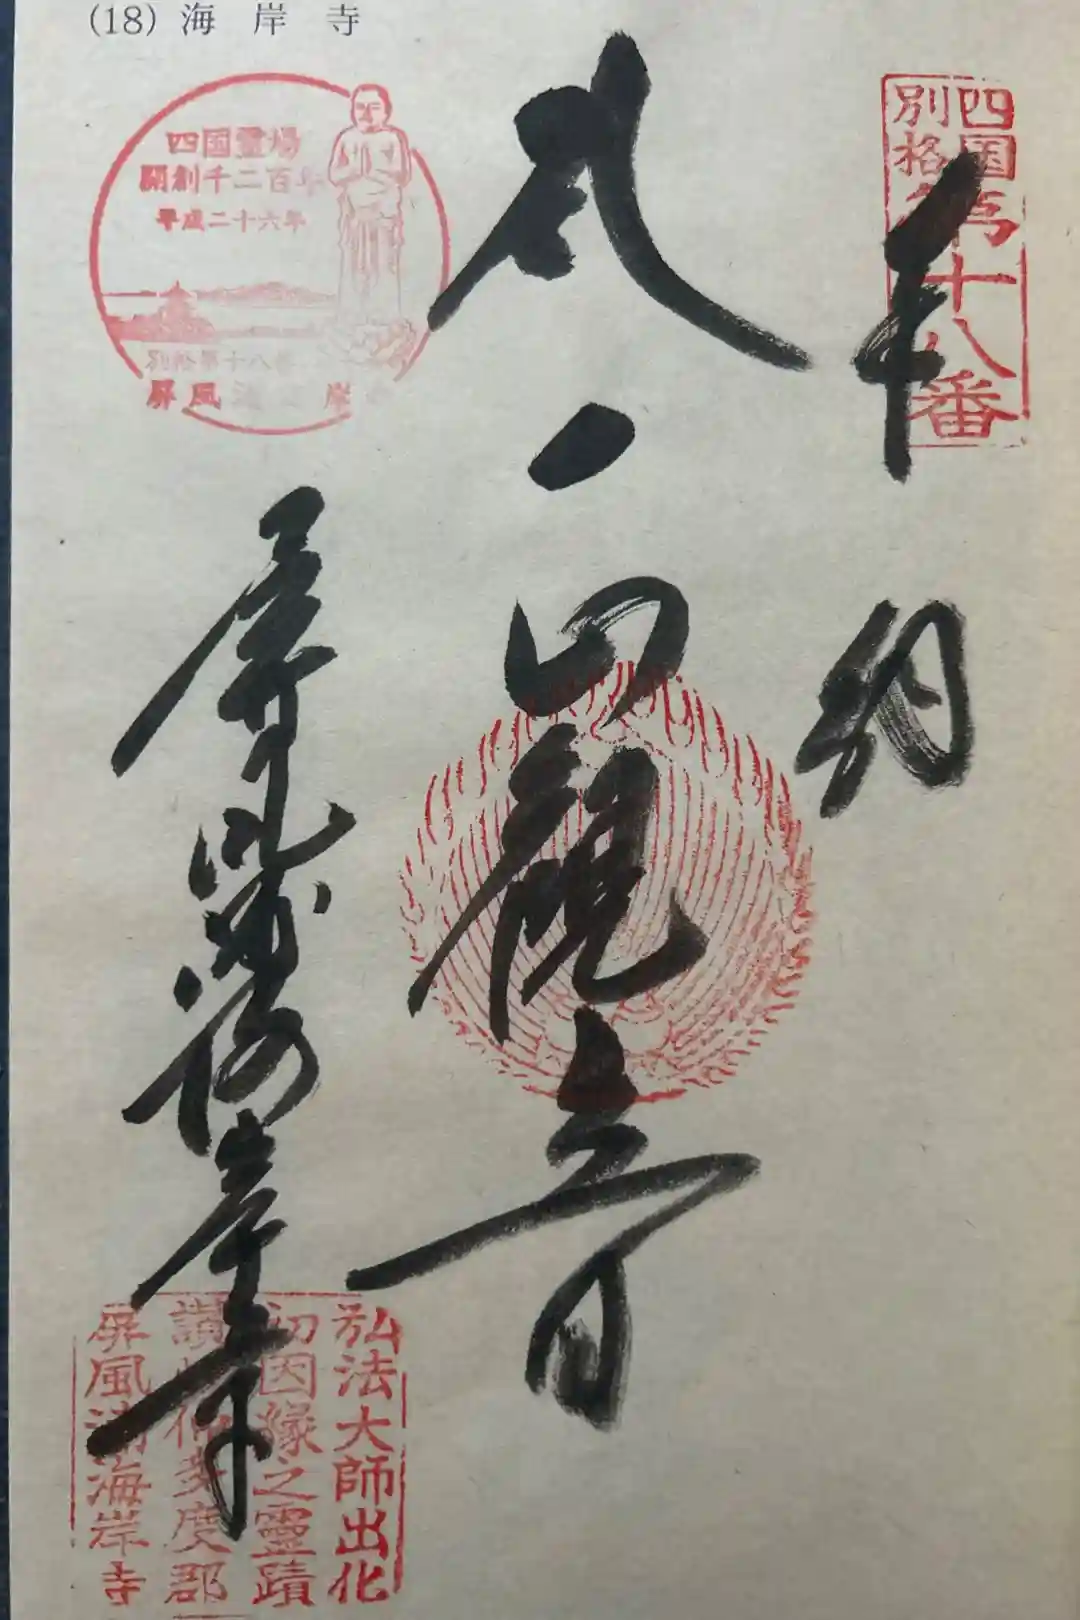 (18) 海岸寺
四国
別格
第十八番
奉納
四国霊場
開創千二百年
平成二十六年
別格第十八番
屏風
岸
正
観音
屏風浦海岸寺
弘法大師出化
初因縁之靈蹟
讃州仲多度郡
屏風浦海岸寺